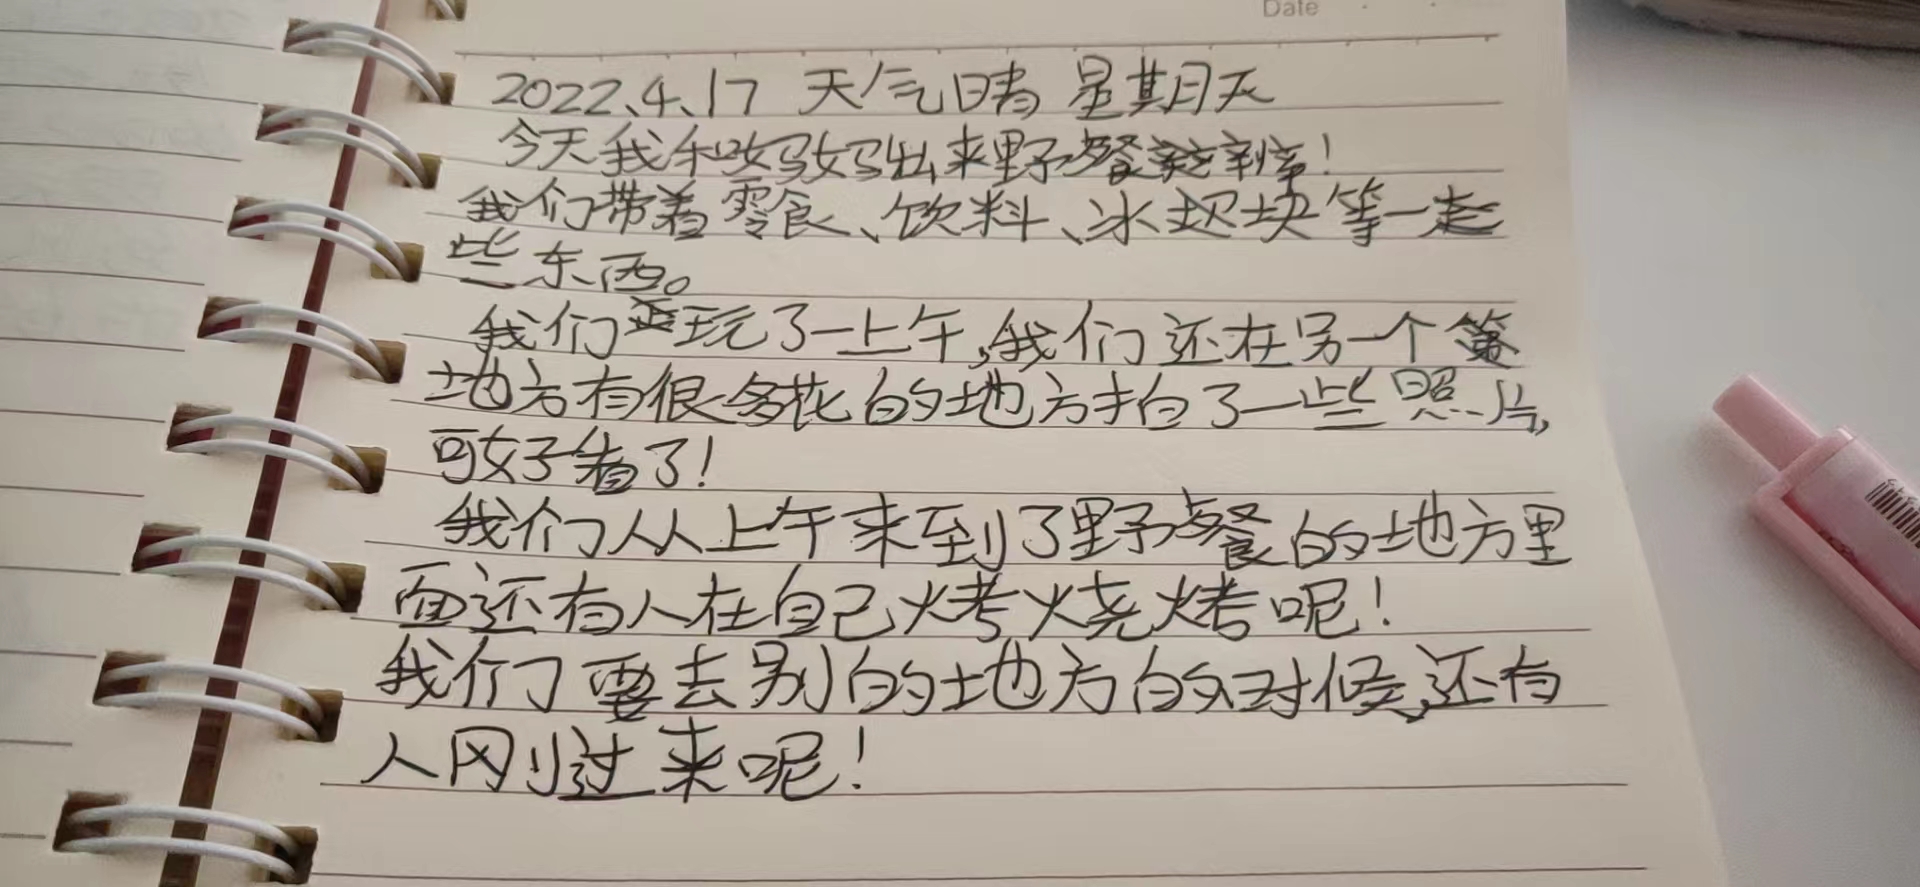 Date
2022、4、17 天气晴 星期天
今天我和妈妈出来野餐!
我们带着零食、饮料、冰块等一
些东西。
我们玩了一上午,我们还在另一个
地方有很多花的地方拍了一些照片,
可好看了!
我们从上午来到了野餐的地方里
面还有人在自己烤烧烤呢!
我们要去别的地方的时候,还有
人刚过来呢!